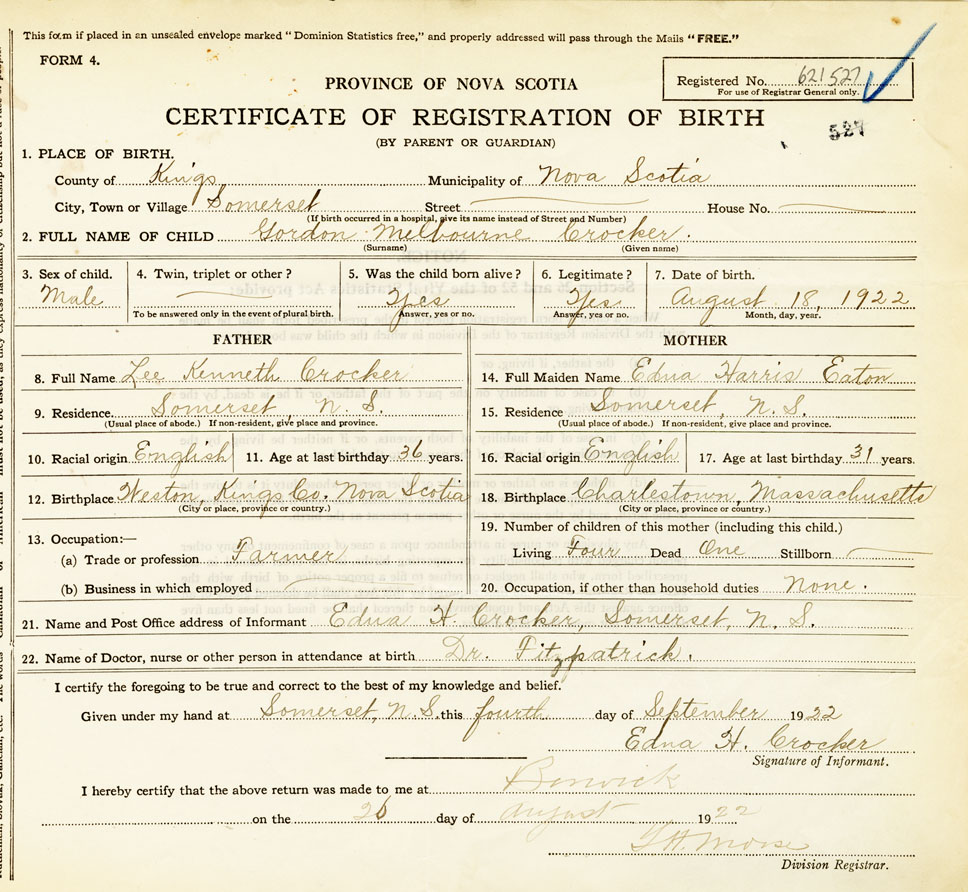 This form if placed in an unsealed envelope marked "Dominion Statistics free," and properly addressed will pass through the Mails "FREE."
FORM 4.
Registered No. 621527
For use of Registrar General only.
PROVINCE OF NOVA SCOTIA
CERTIFICATE OF REGISTRATION OF BIRTH
527
(BY PARENT OR GUARDIAN)
1. PLACE OF BIRTH.
County of Kings Municipality of Nova Scotia
City, Town or Village Somerset Street House No.
(If birth occurred in a hospital, give its name instead of Street and Number)
2. FULL NAME OF CHILD Gordon Melbourne Crocker.
(Surname) (Given name)
3. Sex of child. 4. Twin, triplet or other? 5. Was the child born alive? 6. Legitimate? 7. Date of birth.
Male Yes Yes August 18, 1922
To be answered only in the event of plural birth. Answer, yes or no. Answer, yes or no. Month, day, year.
FATHER MOTHER
8. Full Name Lee Kenneth Crocker 14. Full Maiden Name Edna Harris Eaton
9. Residence. Somerset, N. S. 15. Residence Somerset, N. S.
(Usual place of abode.) If non-resident, give place and province. (Usual place of abode.) If non-resident, give place and province.
10. Racial origin English 11. Age at last birthday 36 years. 16. Racial origin English 17. Age at last birthday 31 years.
12. Birthplace Weston, Kings Co. Nova Scotia 18. Birthplace Charlestown, Massachusetts
(City or place, province or country.) (City or place, province or country.)
13. Occupation:— 19. Number of children of this mother (including this child.)
(a) Trade or profession Farmer Living Four Dead One Stillborn
(b) Business in which employed 20. Occupation, if other than household duties None.
21. Name and Post Office address of Informant Edna H. Crocker, Somerset, N. S.
22. Name of Doctor, nurse or other person in attendance at birth Dr. Fitzpatrick.
I certify the foregoing to be true and correct to the best of my knowledge and belief.
Given under my hand at Somerset, N. S. this fourth day of September 1922
Edna H. Crocker
Signature of Informant.
I hereby certify that the above return was made to me at Berwick
on the 26 day of August 1922
Morse
Division Registrar.